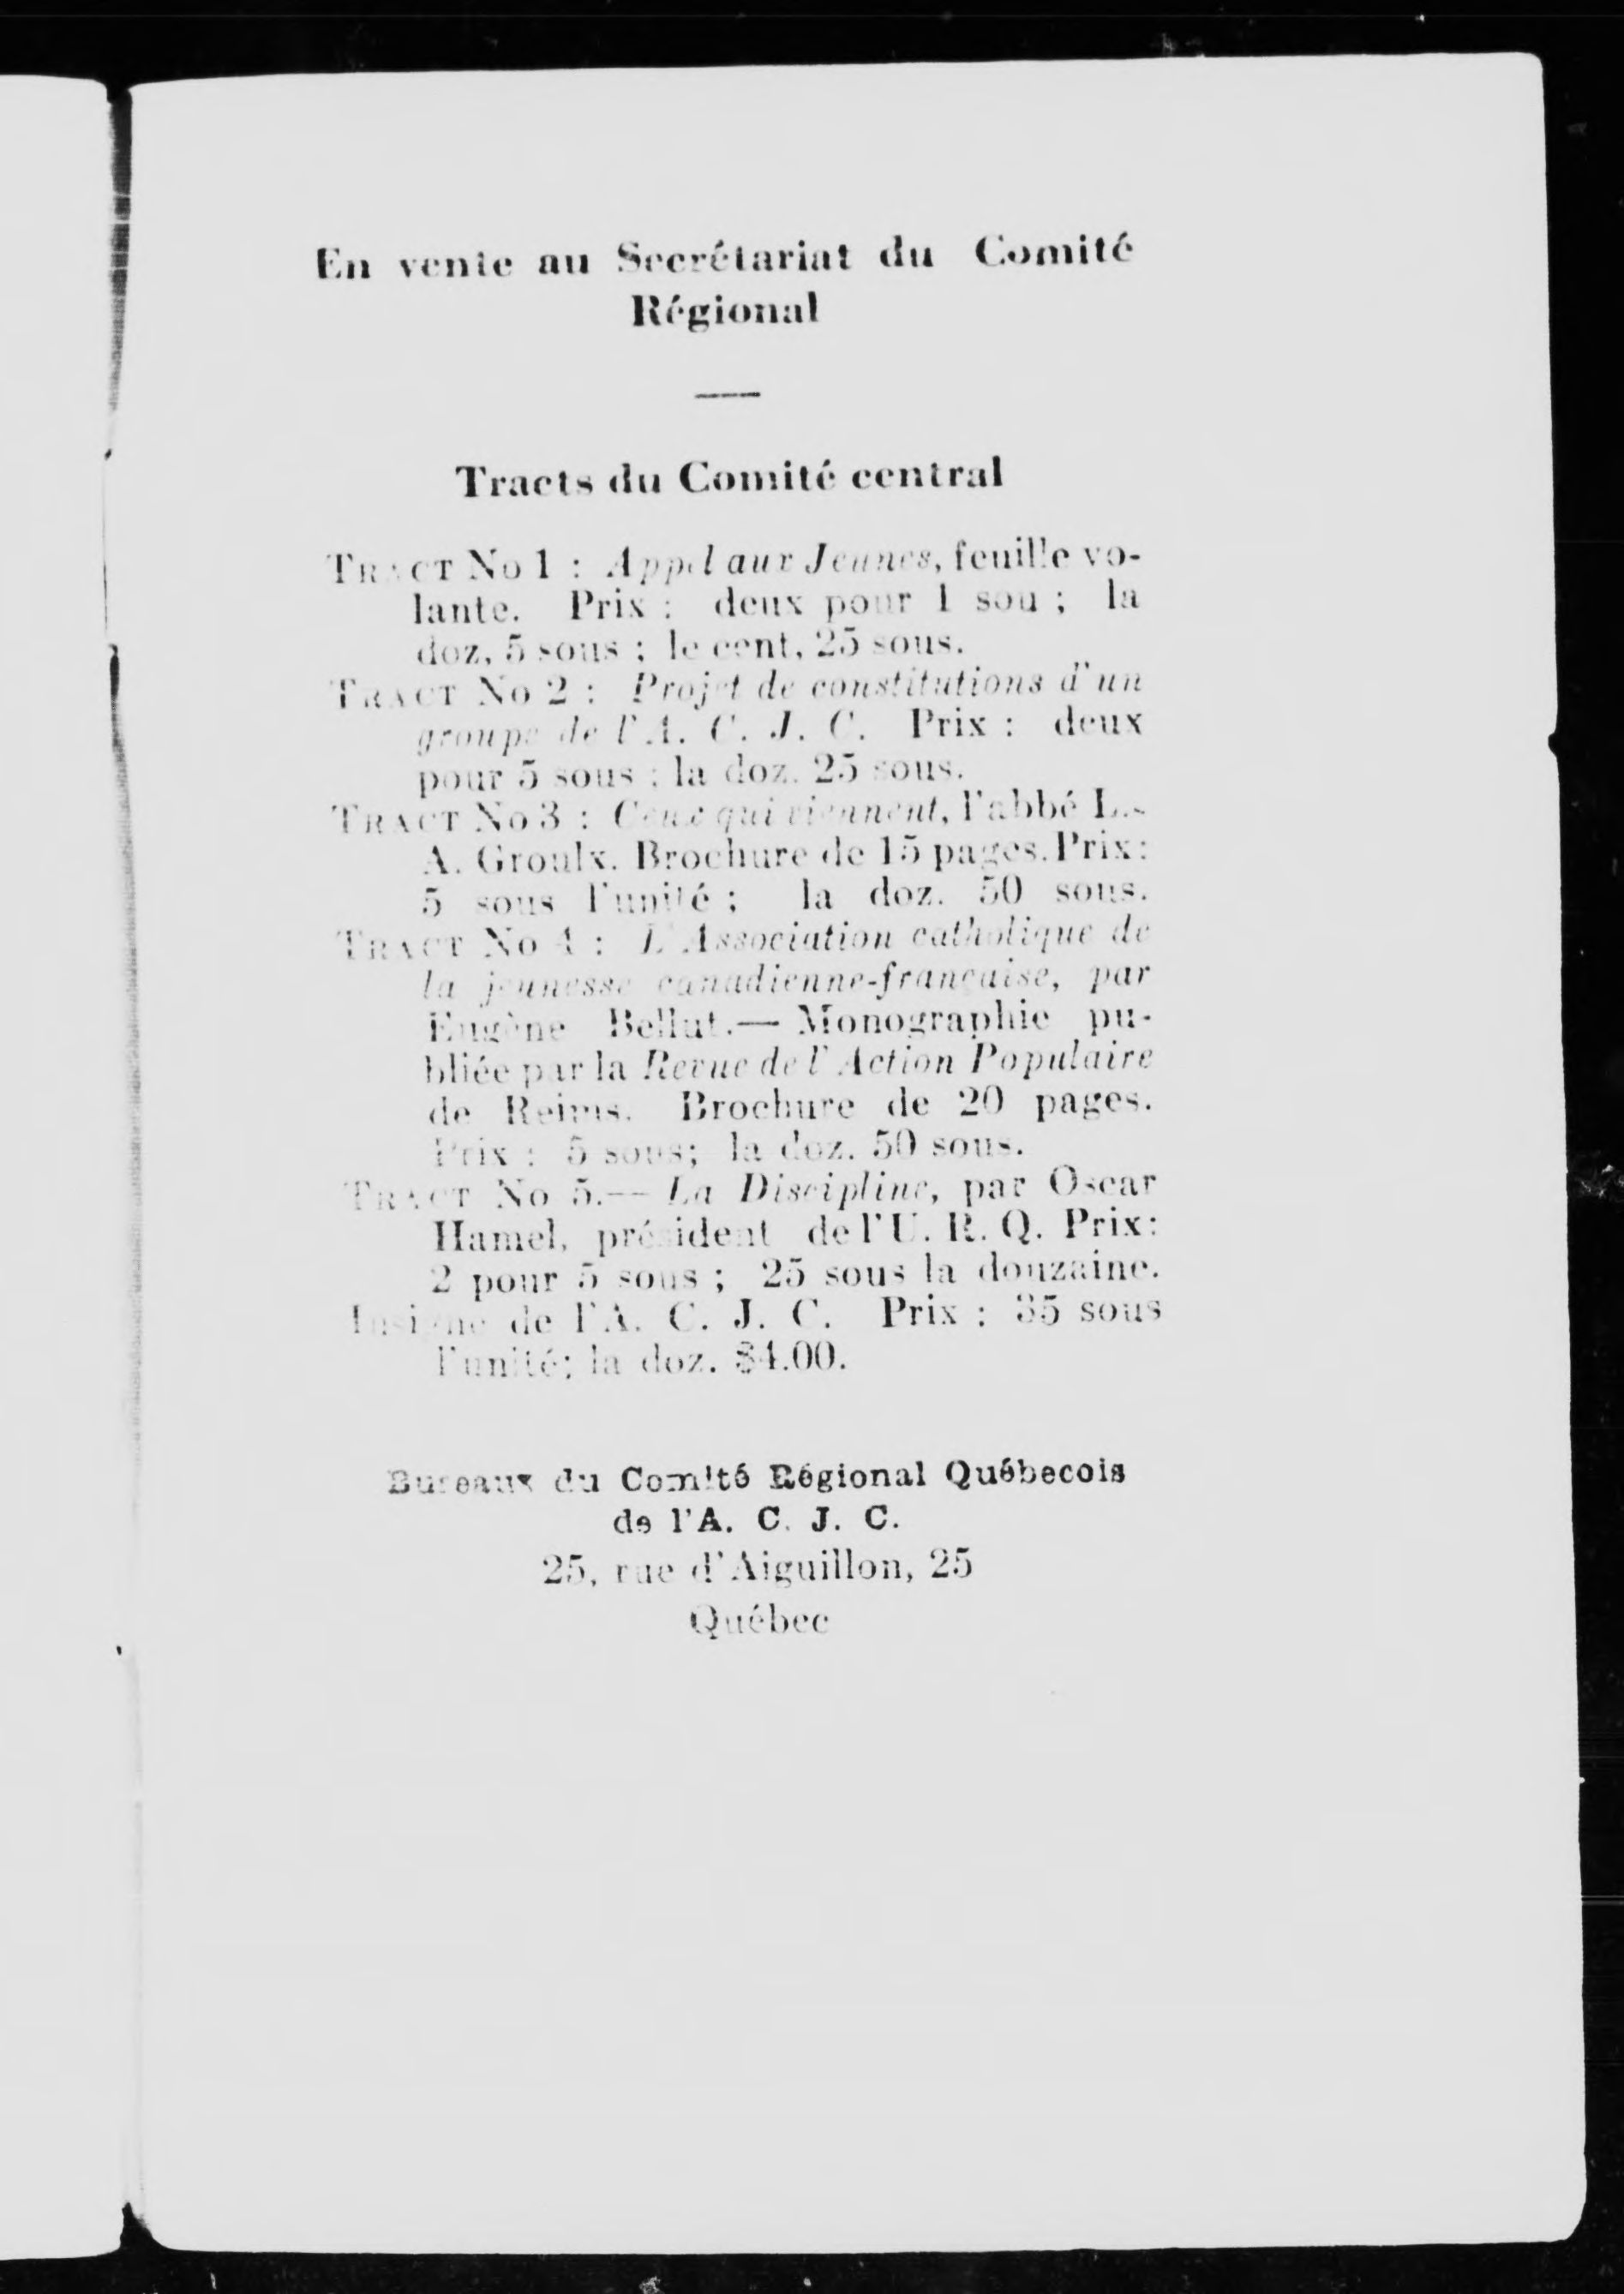 En vente au Secrétariat du Comité
Régional
Tracts du Comité central
TRACT No 1 : Appel aux Jeunes, feuille vo-
lante. Prix : deux pour 1 sou ; la
doz, 5 sous ; le cent, 25 sous.
TRACT No 2 : Projet de constitutions d'un
groupe de l'A. C. J. C. Prix : deux
pour 5 sous ; la doz. 25 sous.
TRACT No 3 : Ceux qui viennent, l'abbé L.-
A. Groulx. Brochure de 15 pages. Prix:
5 sous l'unité ; la doz. 50 sous.
TRACT No 4 : L'Association catholique de
la jeunesse canadienne-française, par
Eugène Bellut.— Monographie pu-
bliée par la Revue de l'Action Populaire
de Reims. Brochure de 20 pages.
Prix : 5 sous; la doz. 50 sous.
TRACT No 5.— La Discipline, par Oscar
Hamel, président de l'U. R. Q. Prix:
2 pour 5 sous ; 25 sous la douzaine.
Insigne de l'A. C. J. C. Prix : 35 sous
l'unité; la doz. $4.00.
Bureaux du Comité Régional Québecois
de l'A. C. J. C.
25, rue d'Aiguillon, 25
Québec